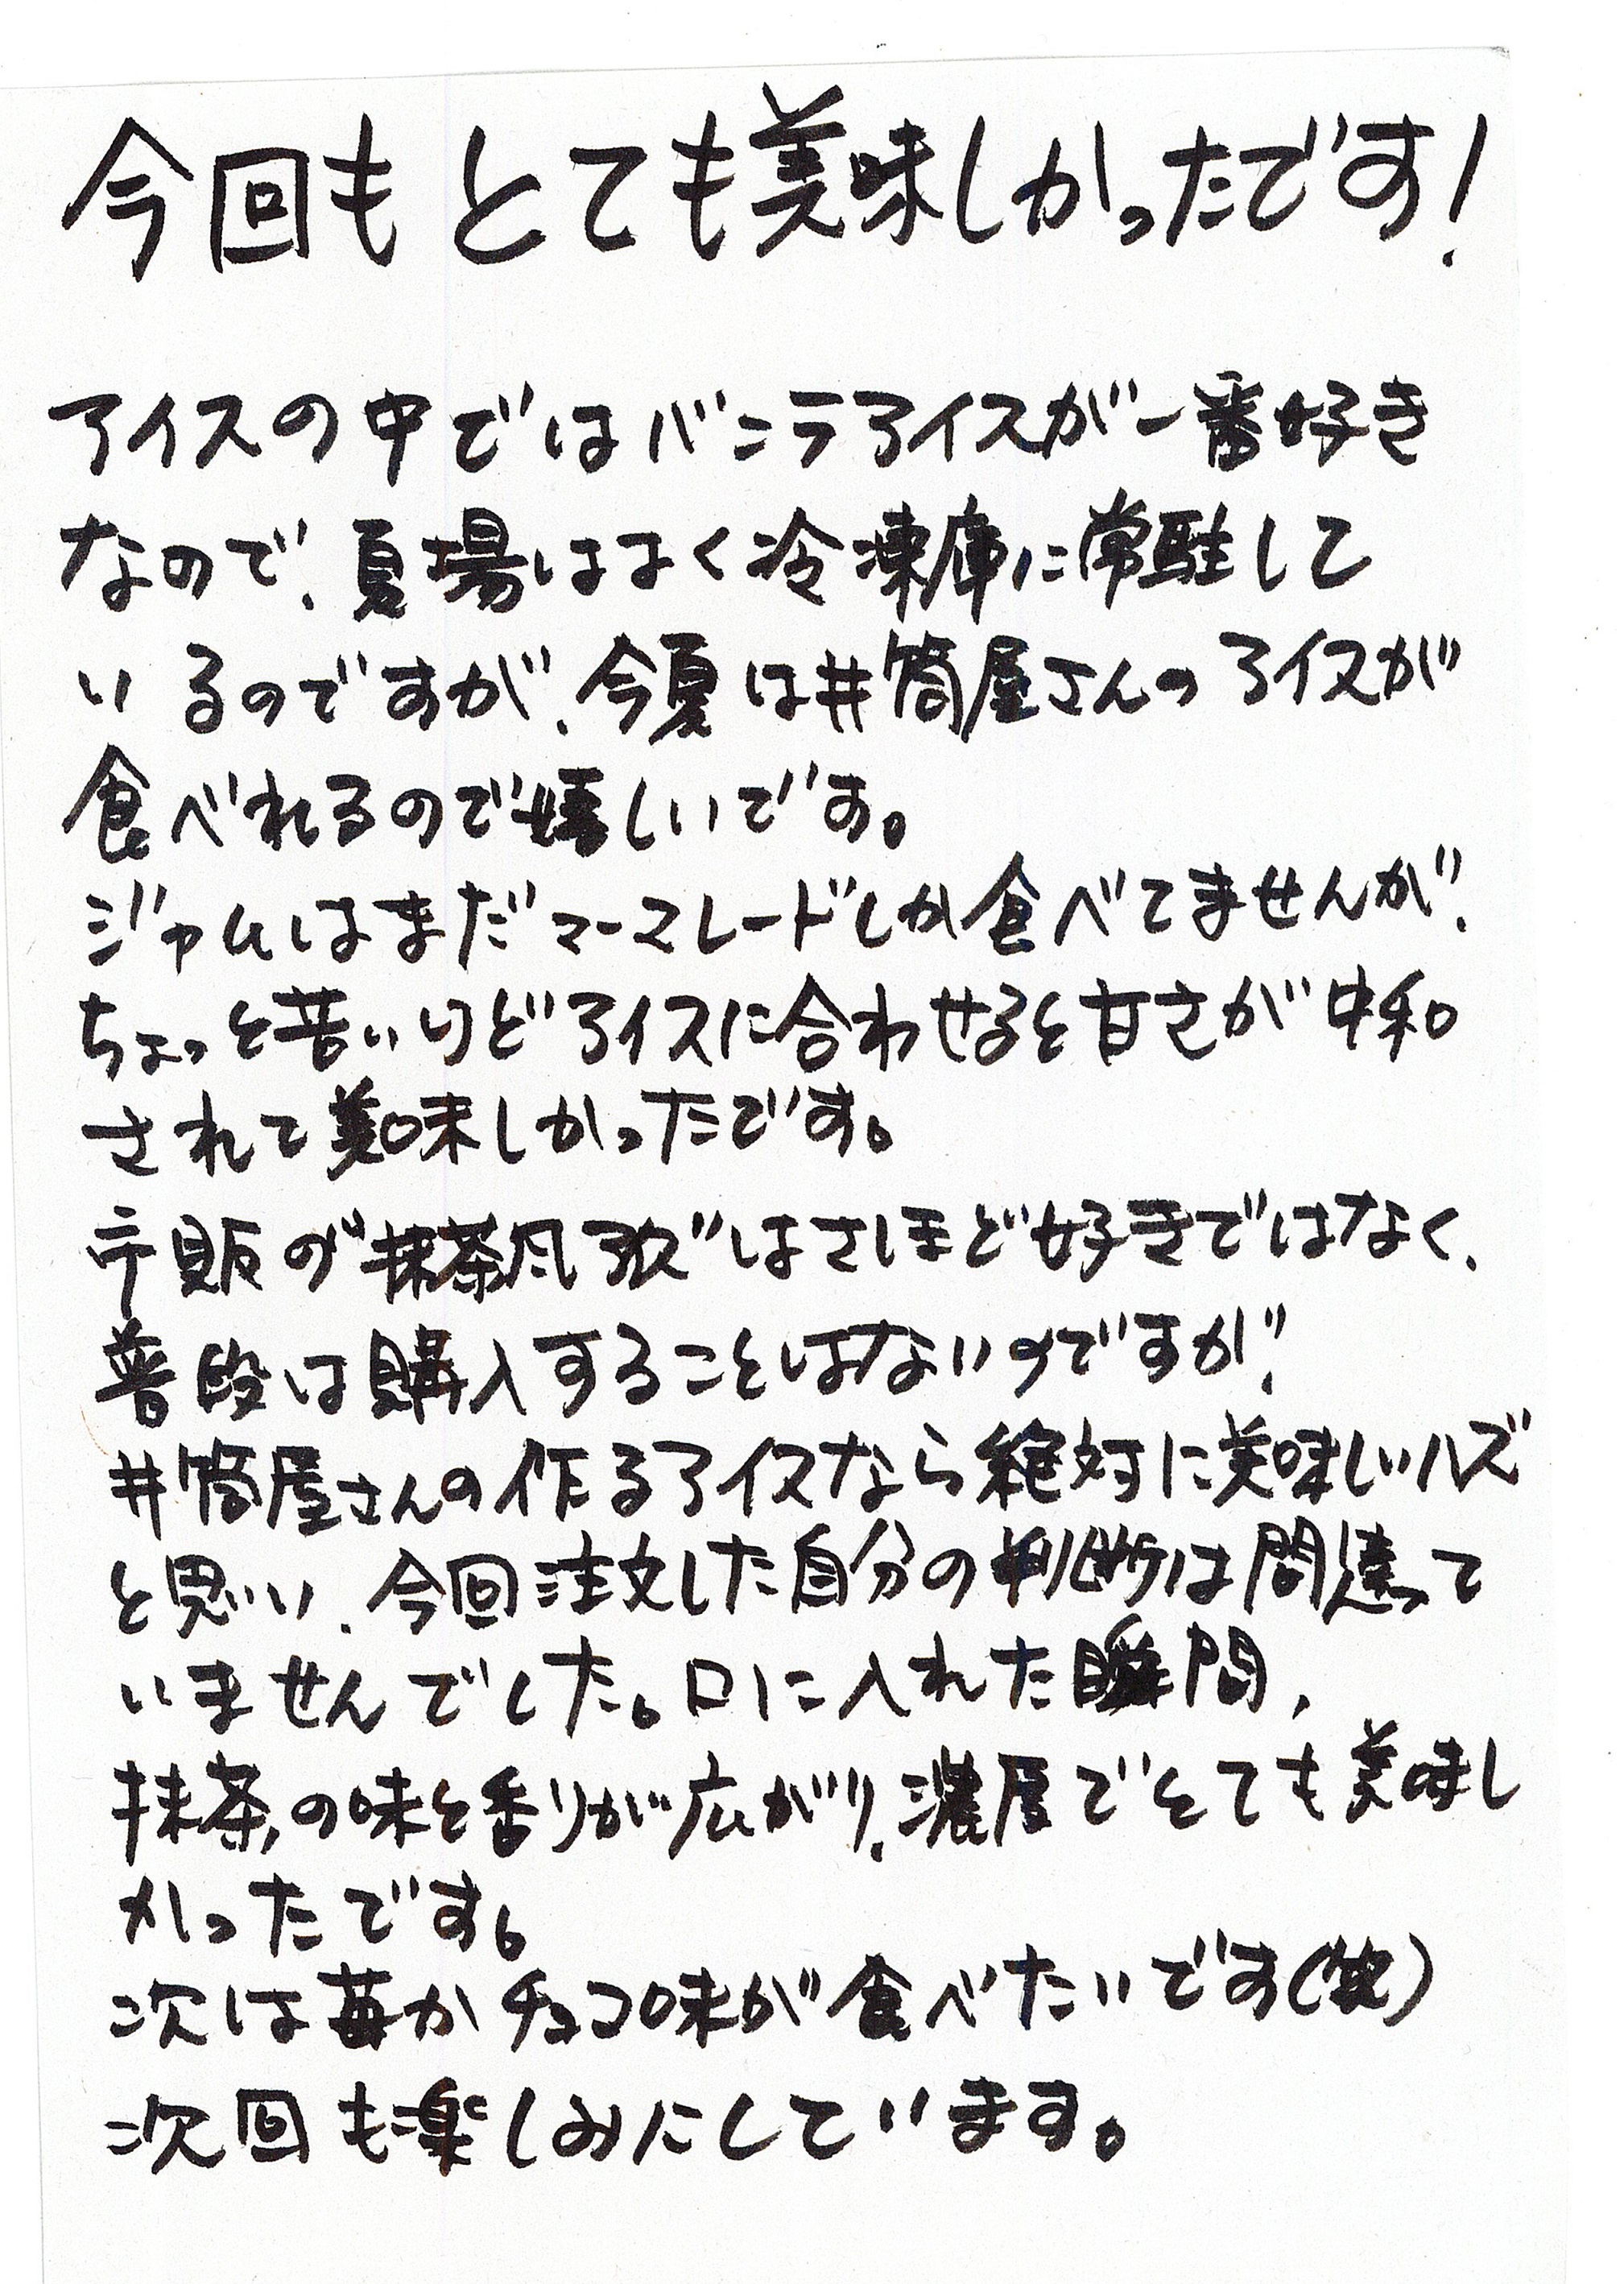 今回もとても美味しかったです!
アイスの中ではバニラアイスが一番好き
なので、夏場はよく冷凍庫に常駐して
いるのですが、今夏は井筒屋さんのアイスが
食べれるので嬉しいです。
ジャムはまだマーマレードしか食べてませんが、
ちょっと苦いけどアイスに合わせると甘さが中和
されて美味しかったです。
市販の“抹茶風味”はさほど好きではなく、
普段は購入することはないのですが、
井筒屋さんの作るアイスなら絶対に美味しいハズ
と思い、今回注文した自分の判断は間違って
いませんでした。口に入れた瞬間、
抹茶の味と香りが広がり、濃厚でとても美味し
かったです。
次は苺かチョコ味が食べたいです(笑)
次回も楽しみにしています。